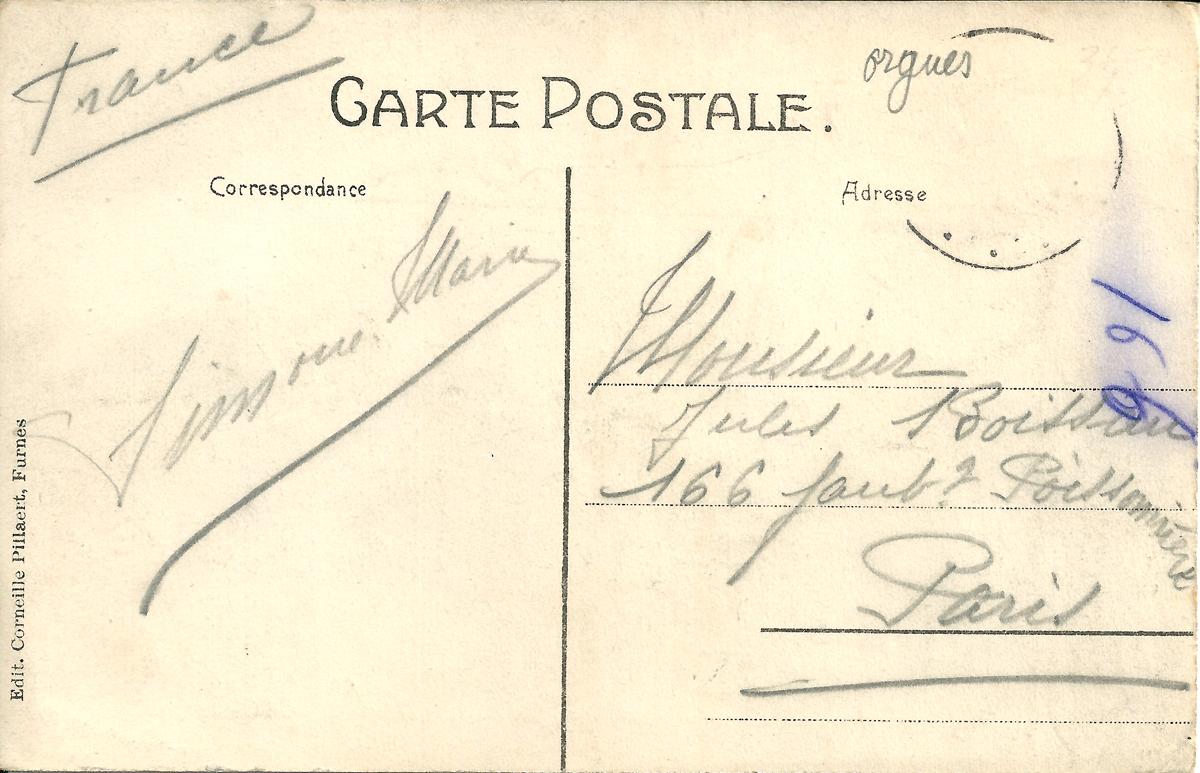 France
orgues
CARTE POSTALE.
Correspondance
Adresse
Simone Maria
Monsieur
Jules Boisseau
166 faubg Poissonnière
Paris
166
Edit. Corneille Pillaert, Furnes